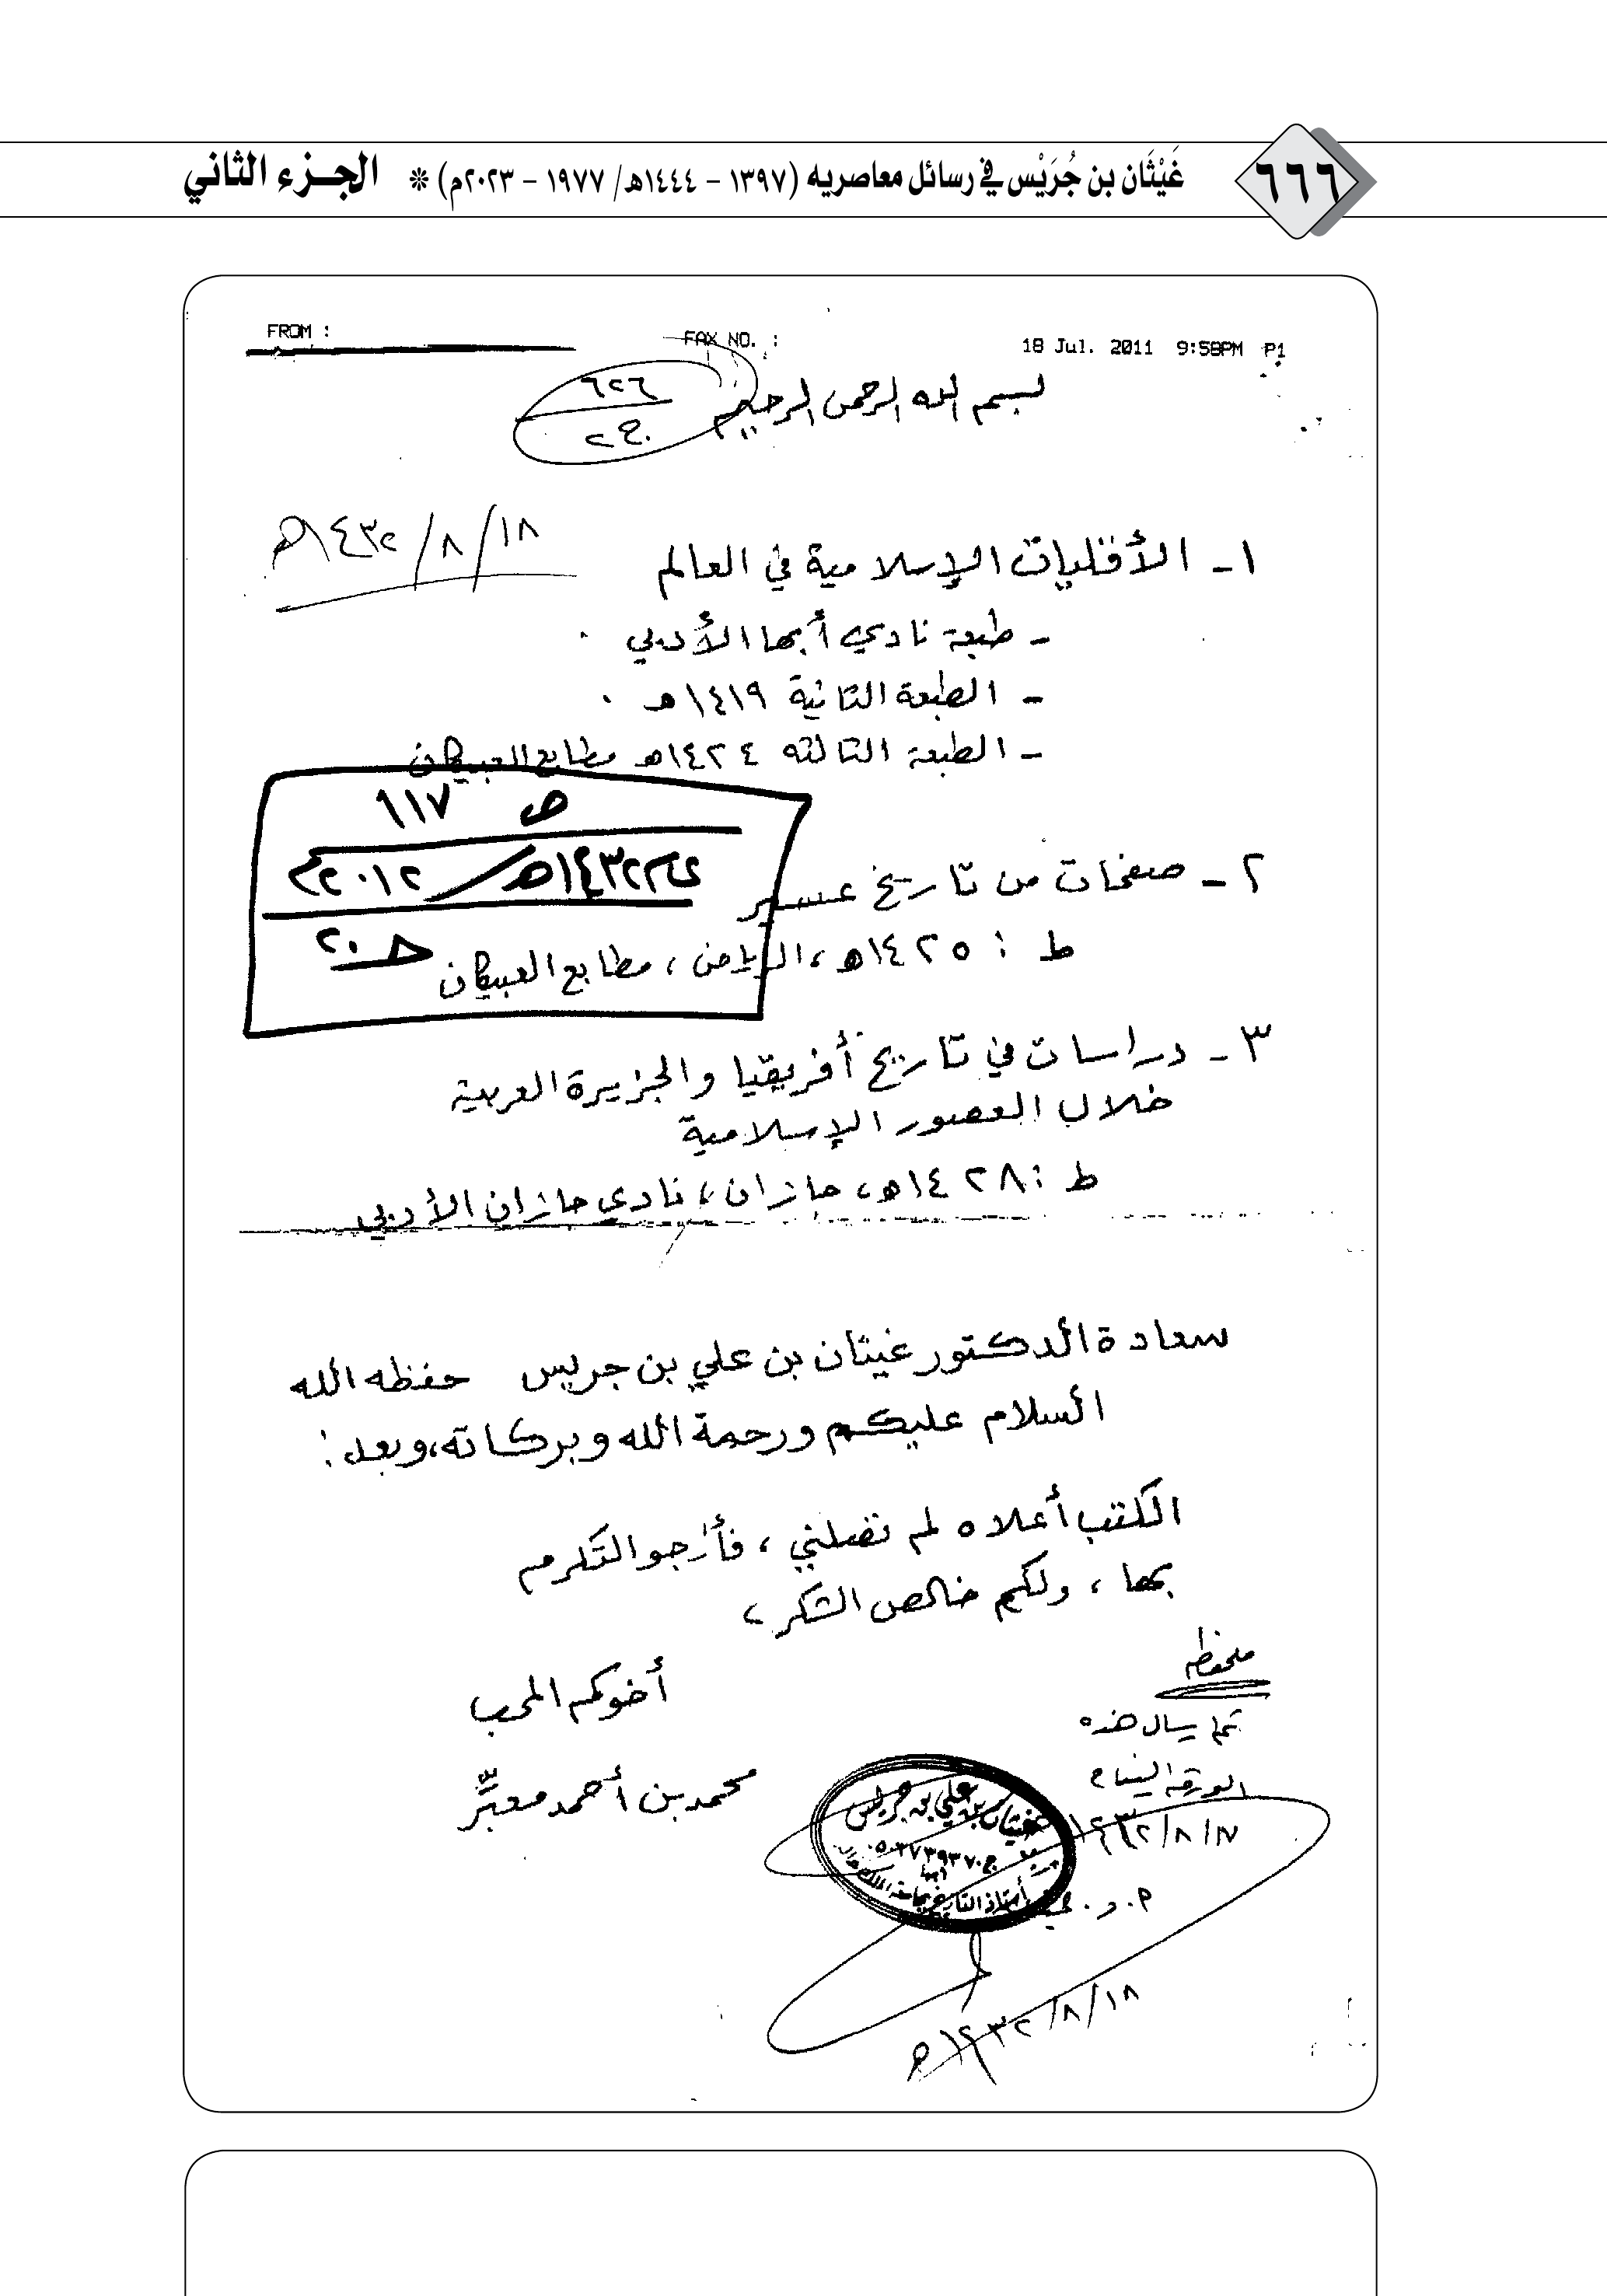 ٦٦٦
غَيْثَان بن جُرَيْس في رسائل معاصريه (١٣٩٧ - ١٤٤٤هـ/ ١٩٧٧ - ٢٠٢٣م) * الجـزء الثاني
FROM :
FAX NO. :
18 Jul. 2011 9:58PM P1
بسم الله الرحمن الرحيم
٦٢٦
ج٢
١٨/٨/١٤٣٢هـ
١- الأقليات الإسلامية في العالم
- طبعة نادي أبها الأدبي .
- الطبعة الثانية ١٤١٩هـ .
- الطبعة الثالثه ١٤٢٤هـ مطابع العبيكان
ص ١١٧
١٤٣٢هـ / ٢٠١٢م
ح ٢٠
٢- صفحات من تاريخ عسير
ط : ١٤٢٥هـ، الرياض، مطابع العبيكان
٣- دراسات في تاريخ أفريقيا والجزيرة العربية
خلال العصور الإسلامية
ط : ١٤٢٨هـ، جازان، نادي جازان الأدبي
سعادة الدكتور غيثان بن علي بن جريس حفظه الله
السلام عليكم ورحمة الله وبركاته، وبعد:
الكتب أعلاه لم تصلني، فأرجو التكرم
بها، ولكم خالص الشكر،
أخوكم المحب
محمد بن أحمد معبِّر
ملحوظه
هذه
الورقه
١٧/٨/١٤٣٢
غيثان بن علي بن جريس
ج.٠٥٠٣٧٣٩٣٧٠
أبها
أستاذ التاريخ بجامعة الملك خالد
١٨/٨/١٤٣٢هـ